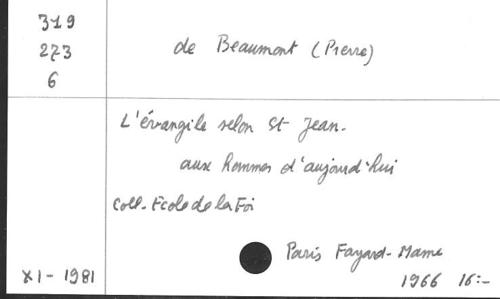 319
273
6
de Beaumont (Pierre)
L'évangile selon St Jean.
aux hommes d'aujourd'hui
Coll. Ecole de la Foi
Paris Fayard-Mame
XI - 1981
1966 16:-